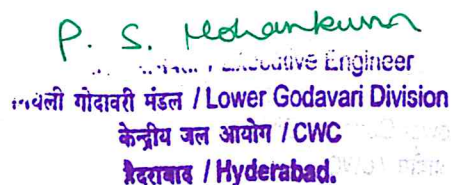 P. S. Mohankumar
/ Executive Engineer
गोदावरी मंडल / Lower Godavari Division
केन्द्रीय जल आयोग / CWC
हैदराबाद / Hyderabad.